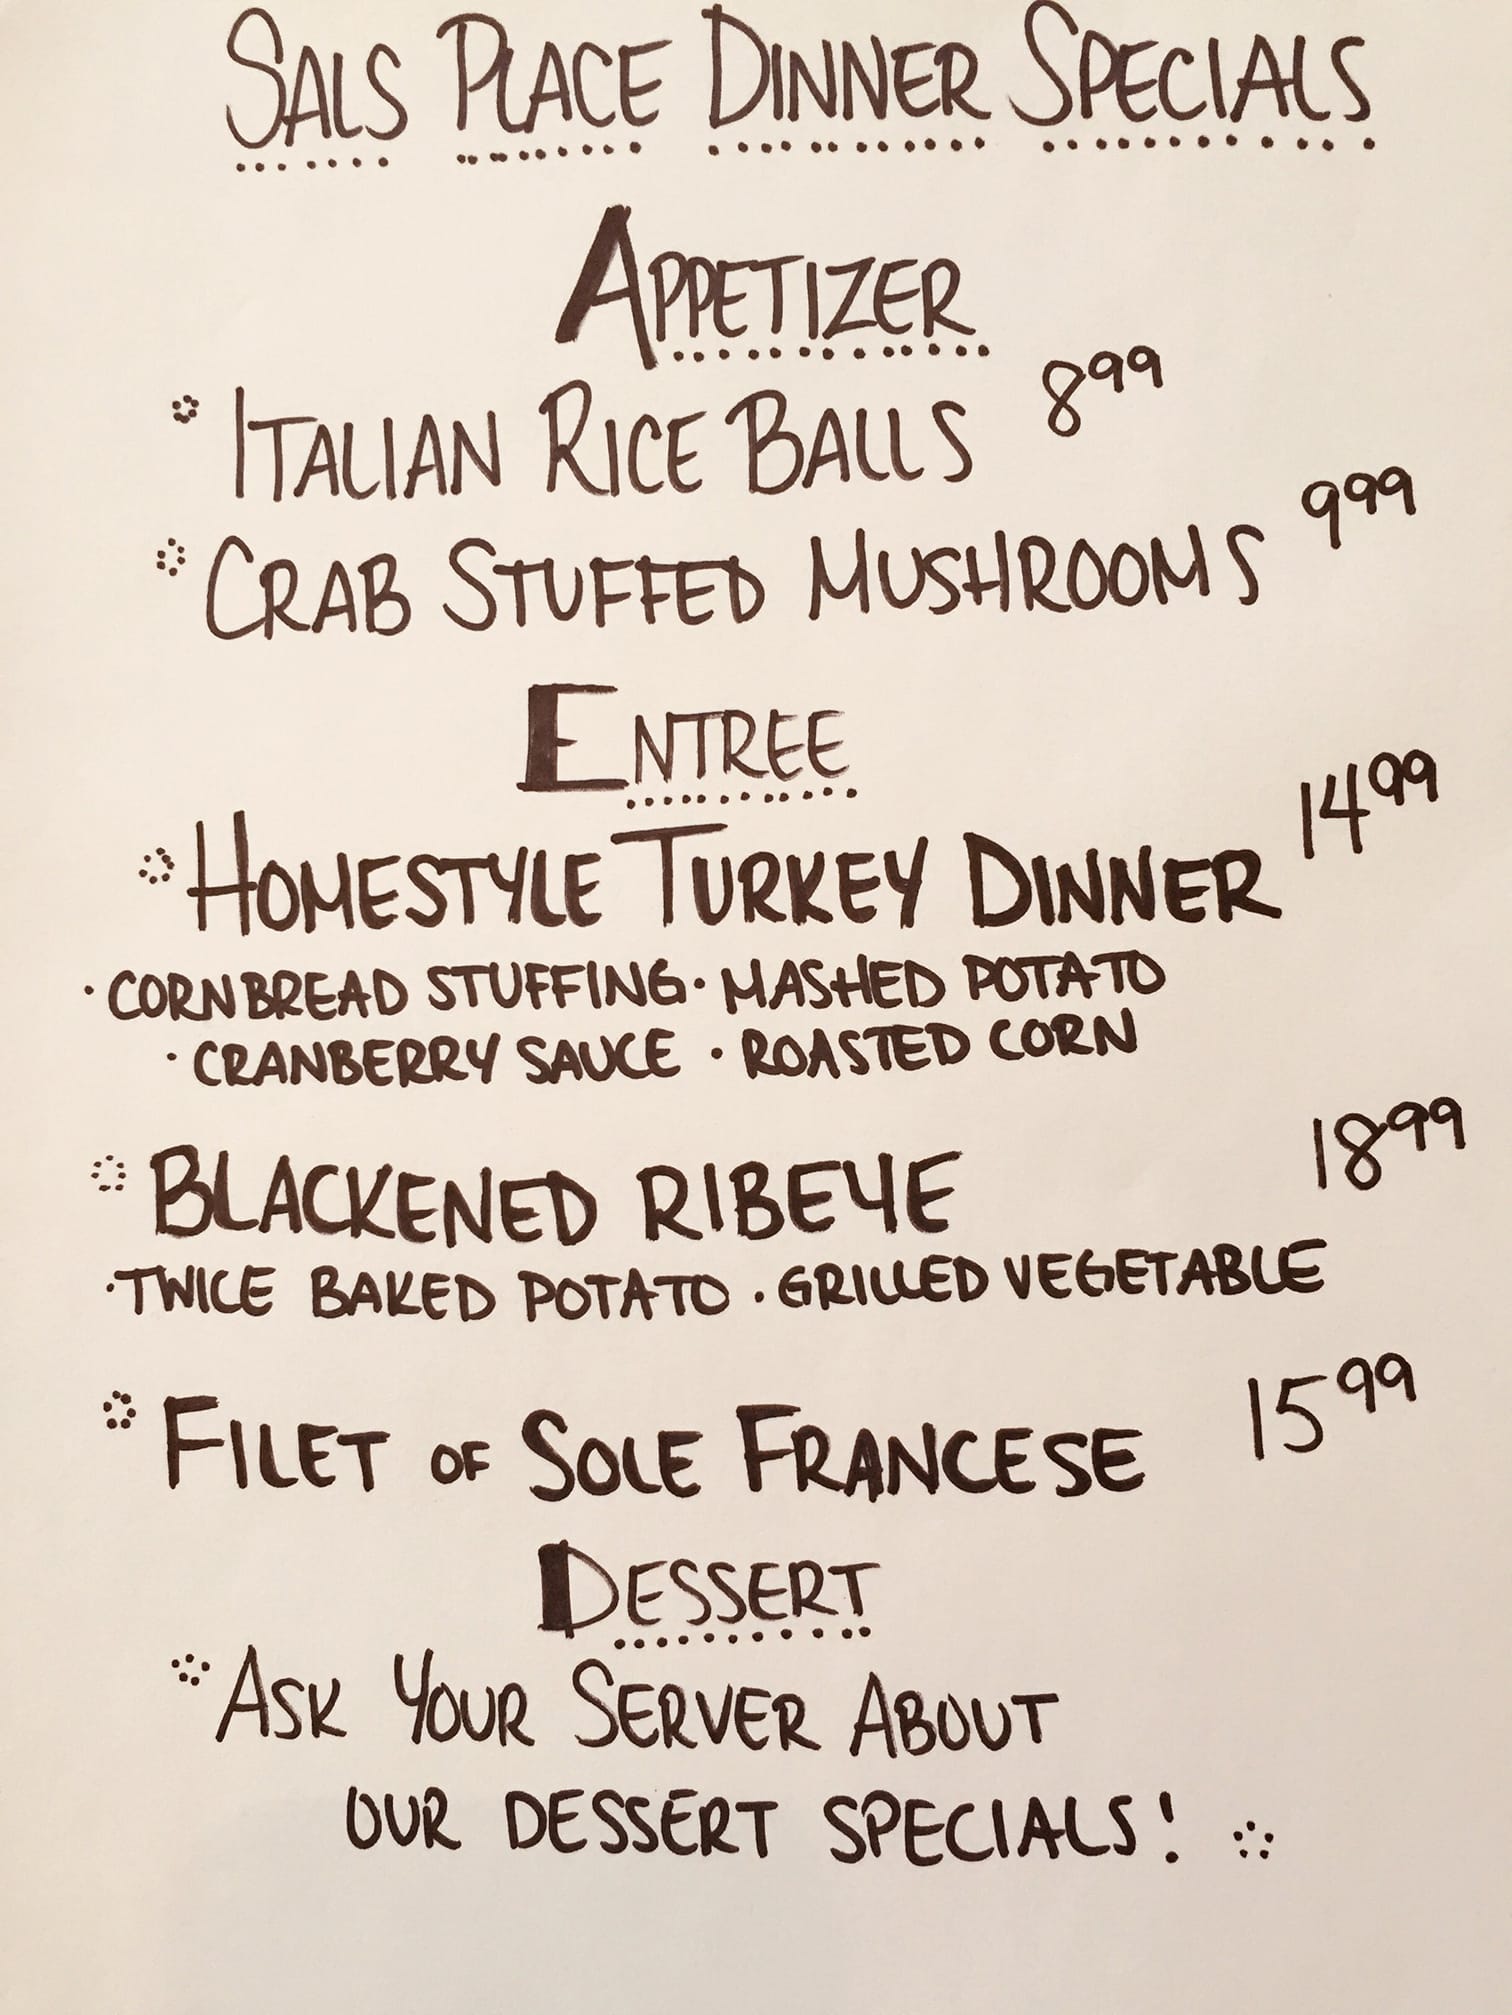 SALS PLACE DINNER SPECIALS
APPETIZER
ITALIAN RICE BALLS 8 99
CRAB STUFFED MUSHROOMS 9 99
ENTREE
HOMESTYLE TURKEY DINNER 14 99
· CORNBREAD STUFFING · MASHED POTATO
· CRANBERRY SAUCE · ROASTED CORN
BLACKENED RIBEYE 18 99
· TWICE BAKED POTATO · GRILLED VEGETABLE
FILET OF SOLE FRANCESE 15 99
DESSERT
ASK YOUR SERVER ABOUT
OUR DESSERT SPECIALS!